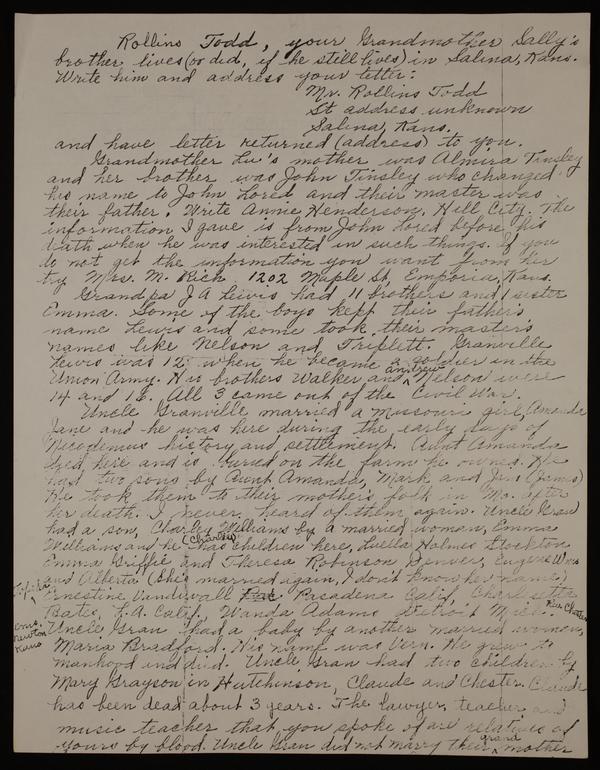 Rollins Todd, your Grandmother Sally's
brother lives (or did, if he still lives) in Salina, Kans.
Write him and address your letter:
Mr. Rollins Todd
St address unknown
Salina, Kans.
and have letter returned (address) to you.
Grandmother Lu's mother was Almira Tinsley
and her brother was John Tinsley who changed
his name to John Lored and their master was
their father. Write Annie Henderson, Hill City. The
information I gave is from John Lored before his
death when he was interested in such things. If you
do not get the information you want from her
try Mrs. M. Rich 1202 Maple St, Emporia, Kans.
Grandpa J A Lewis had 11 brothers and 1 sister
Emma. Some of the boys kept their father's
name Lewis and some took their master's
names like Nelson and Triplett. Granville
Lewis was 12 when he became a soldier in the
Union Army. His brothers Walker and Andrew Nelson were
14 and 16. All 3 came out of the Civil War.
Uncle Granville married a Missouri girl Amanda
Jane and he was here during the early days of
Nicodemus history and settlement. Aunt Amanda
died here and is buried on the farm he owned. He
had two sons by Aunt Amanda, Mark and Jim (James)
He took them to their mother's folk in Mo. after
her death. I never heard of them again. Uncle Gran
had a son, Charley Williams by a married woman, Emma
Williams and he (Charley) has children here, Luella Holmes Stockton
Emma Griffie and Theresa Robinson Denver, Eugene Wms
and Alberta (She married again, I don't know her name)
Topeka
Ernestine Vandivall Pasadena Calif, Charlsetta
Bates, L.A. Calif, Wanda Adams Detroit Mich.
Wms. Newton Kans
Uncle Gran had a baby by another married woman,
Maria Bradford. His name was Vern. He grew to
manhood and died. Uncle Gran had two children by
Mary Grayson in Hutchinson, Claude and Chester. Claude
has been dead about 3 years. The lawyer, teacher and
music teacher that you spoke of are relatives of
yours by blood. Uncle Gran did not marry their grand mother